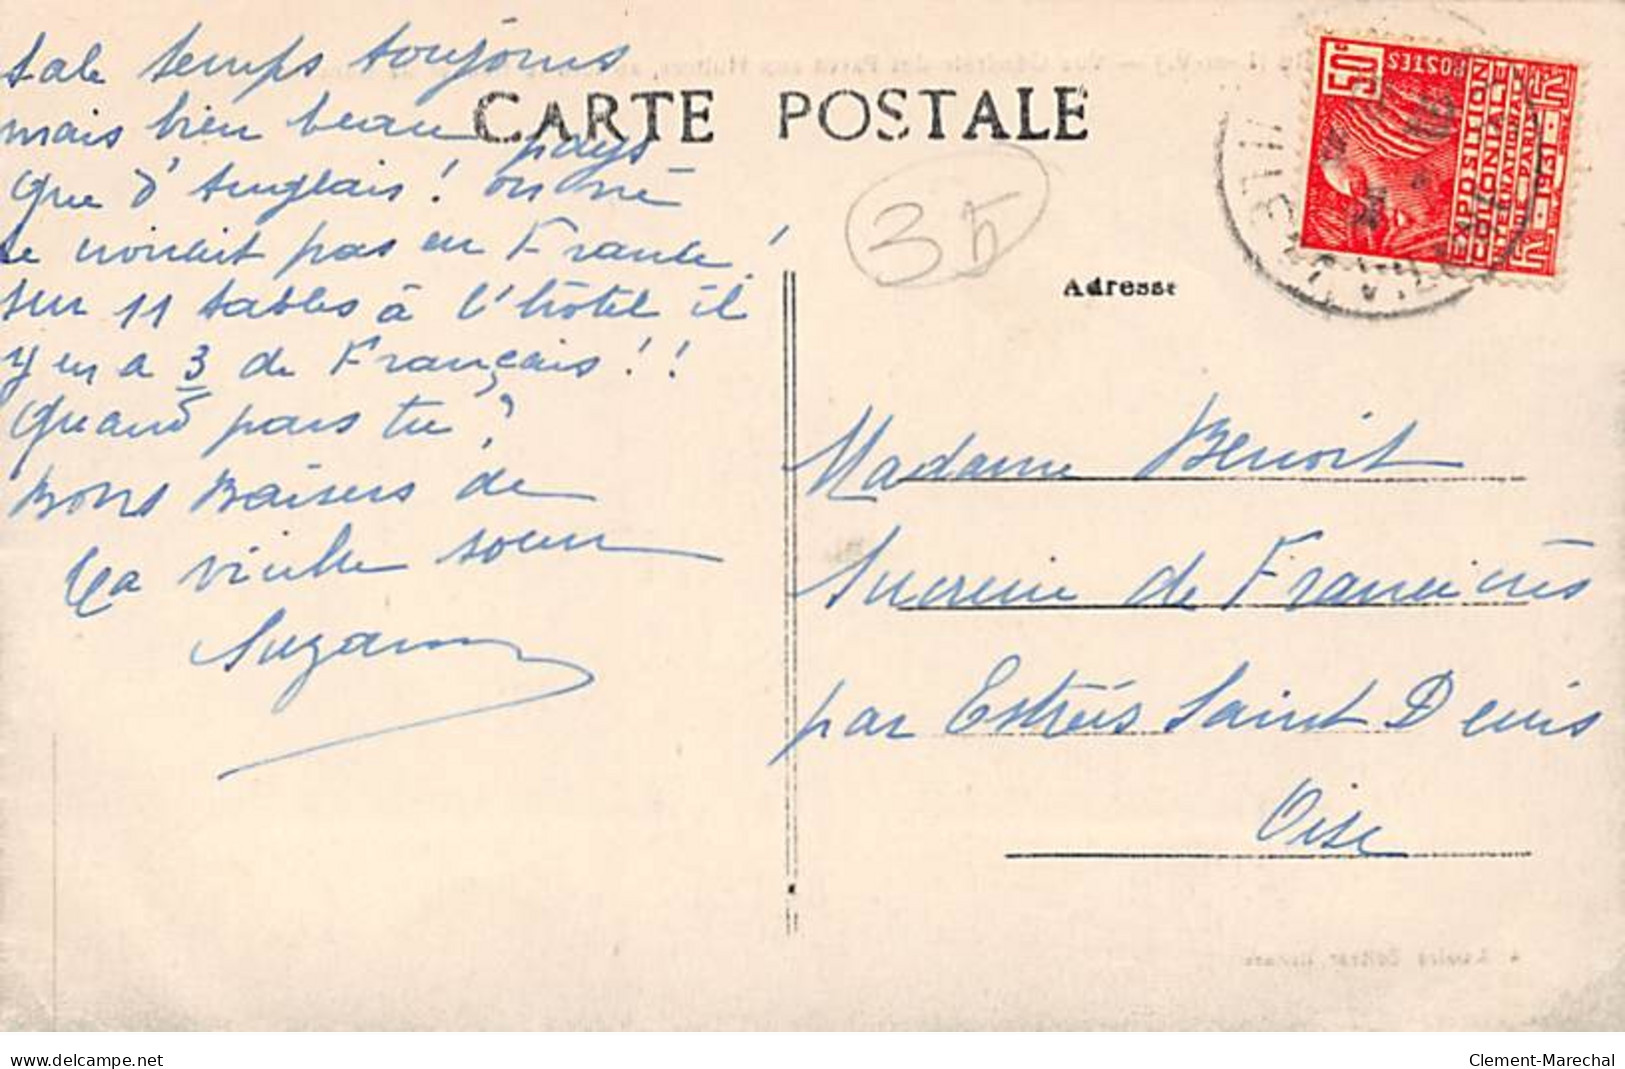 sale temps toujours
mais bien beau pays
Que d'anglais! on ne
se croirait pas en France!
sur 11 tables à l'hôtel il
y en a 3 de Français!!
Quand pars tu?
Bons Baisers de
ta vieille soeur
Suzanne
CARTE POSTALE
3h
Adresse
Madame Benoit
Sucrerie de Francières
par Estrées Saint Denis
Oise
50c
POSTES
EXPOSITION
COLONIALE
INTERNATIONALE
DE PARIS
1931
delcampe.net
Clement-Marechal